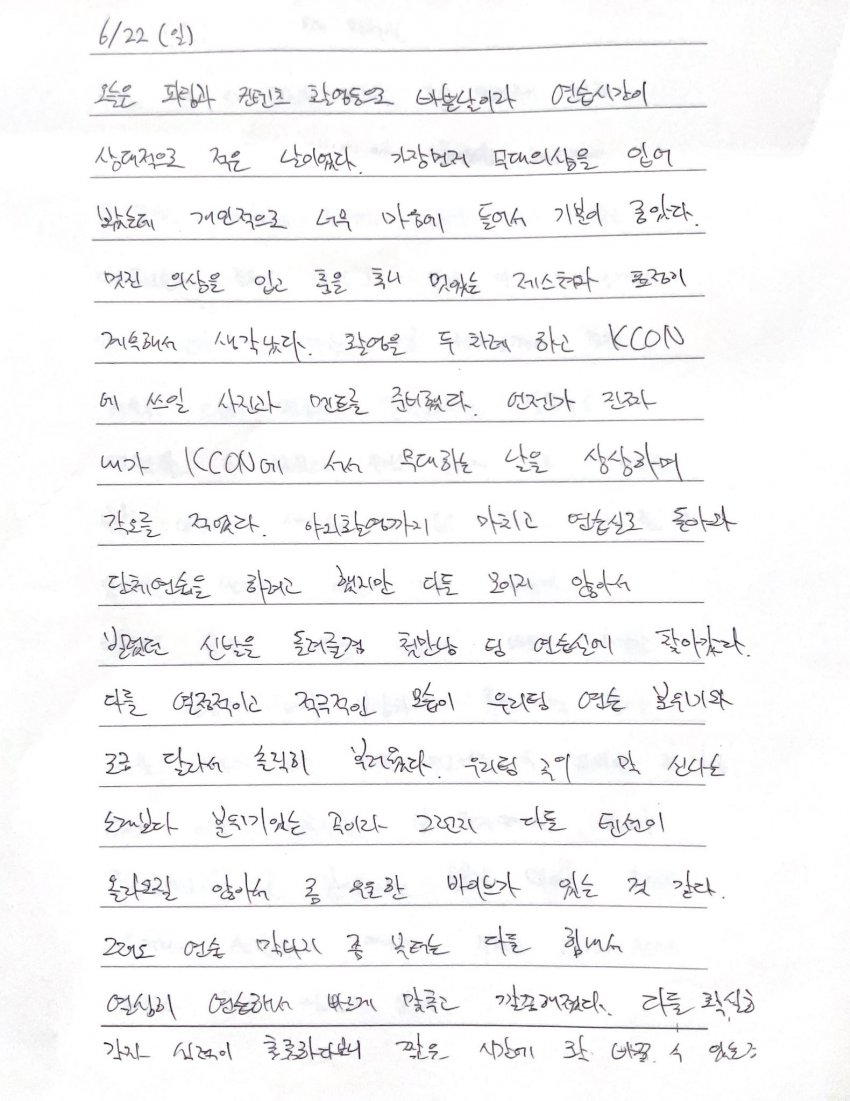 6/22 (일)
오늘은 파팀과 컨텐츠 촬영등으로 바쁜날이라 연습시간이
상대적으로 적은 날이었다. 가장먼저 무대의상을 입어
봤는데 개인적으로 너무 마음에 들어서 기분이 좋았다.
멋진 의상을 입고 춤을 추니 멋있는 제스처와 표정이
계속해서 생각났다. 촬영을 두 차례 하고 KCON
에 쓰일 사진과 멘트를 준비했다. 언젠가 진짜
내가 KCON에 서서 무대하는 날을 상상하며
각오를 적었다. 야외촬영까지 마치고 연습실로 돌아와
단체연습을 하려고 했지만 다들 모이지 않아서
빌렸던 신발을 돌려줄겸 첫만남 팀 연습실에 찾아갔다.
다들 열정적이고 적극적인 모습이 우리팀 연습 분위기와
조금 달라서 솔직히 부러웠다. 우리팀 곡이 막 신나는
노래보다 분위기있는 곡이라 그런지 다들 텐션이
올라오질 않아서 좀 우울한 바이브가 있는 것 같다.
그래도 연습 막바지 쯤 부터는 다들 힘내서
열심히 연습해서 빠르게 맞추고 갈무리해졌다. 다들 확실히
각자 실력이 훌륭하다보니 짧은 시간에 확 바뀔 수 있는